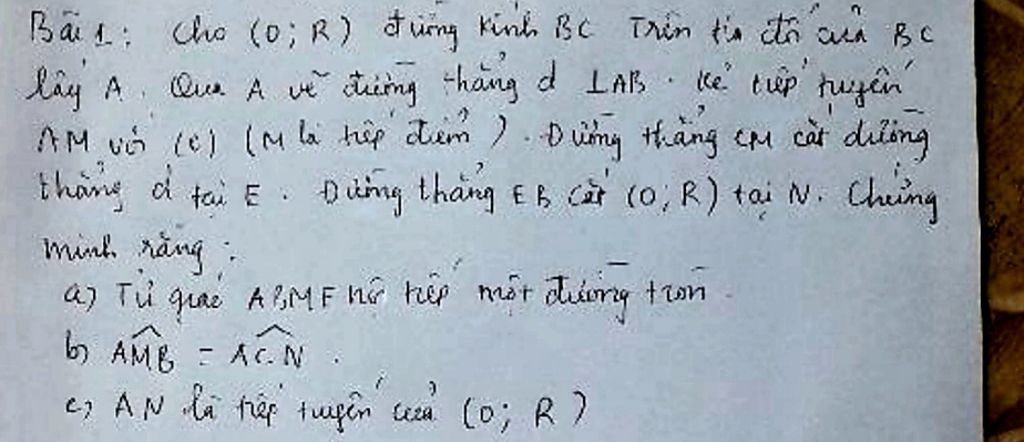 Bài 1: Cho (O; R) đường kính BC Trên tia đối của BC
lấy A. Qua A vẽ đường thẳng d ⊥AB. Kẻ tiếp tuyến
AM với (O) (M là tiếp điểm). Đường thẳng CM cắt đường
thẳng d tại E. Đường thẳng EB cắt (O; R) tại N. Chứng
minh rằng:
a) Tứ giác ABME nội tiếp một đường tròn.
b) AMB = ACN.
c) AN là tiếp tuyến của (O; R)